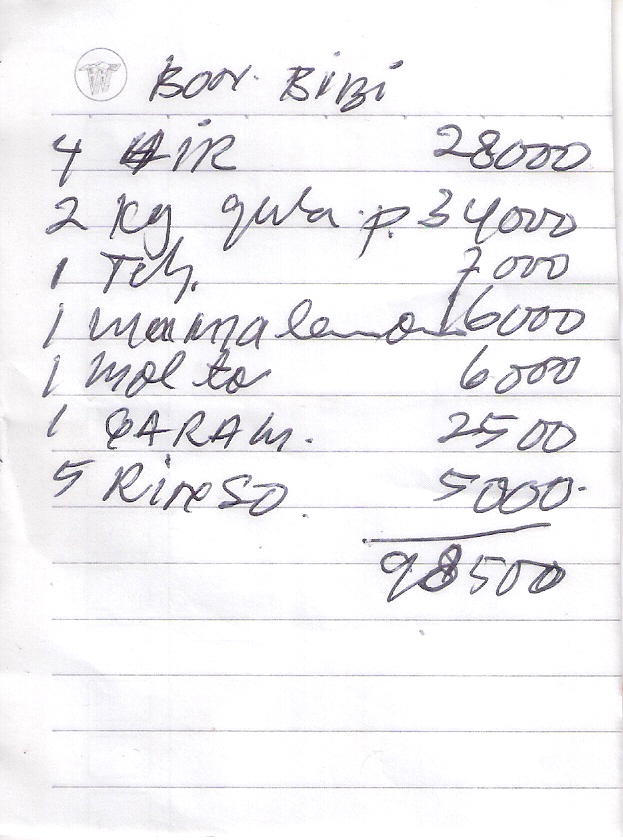 Bon. BiBi
4 AiR 28000
2 kg gula p. 34000
1 Teh. 7000
1 mama lemon 16000
1 molto 6000
1 GARAM. 2500
5 RinSO. 5000.
98500